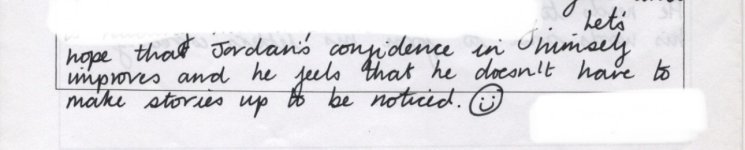 Let's
hope that Jordan's confidence in himself
improves and he feels that he doesn't have to
make stories up to be noticed.